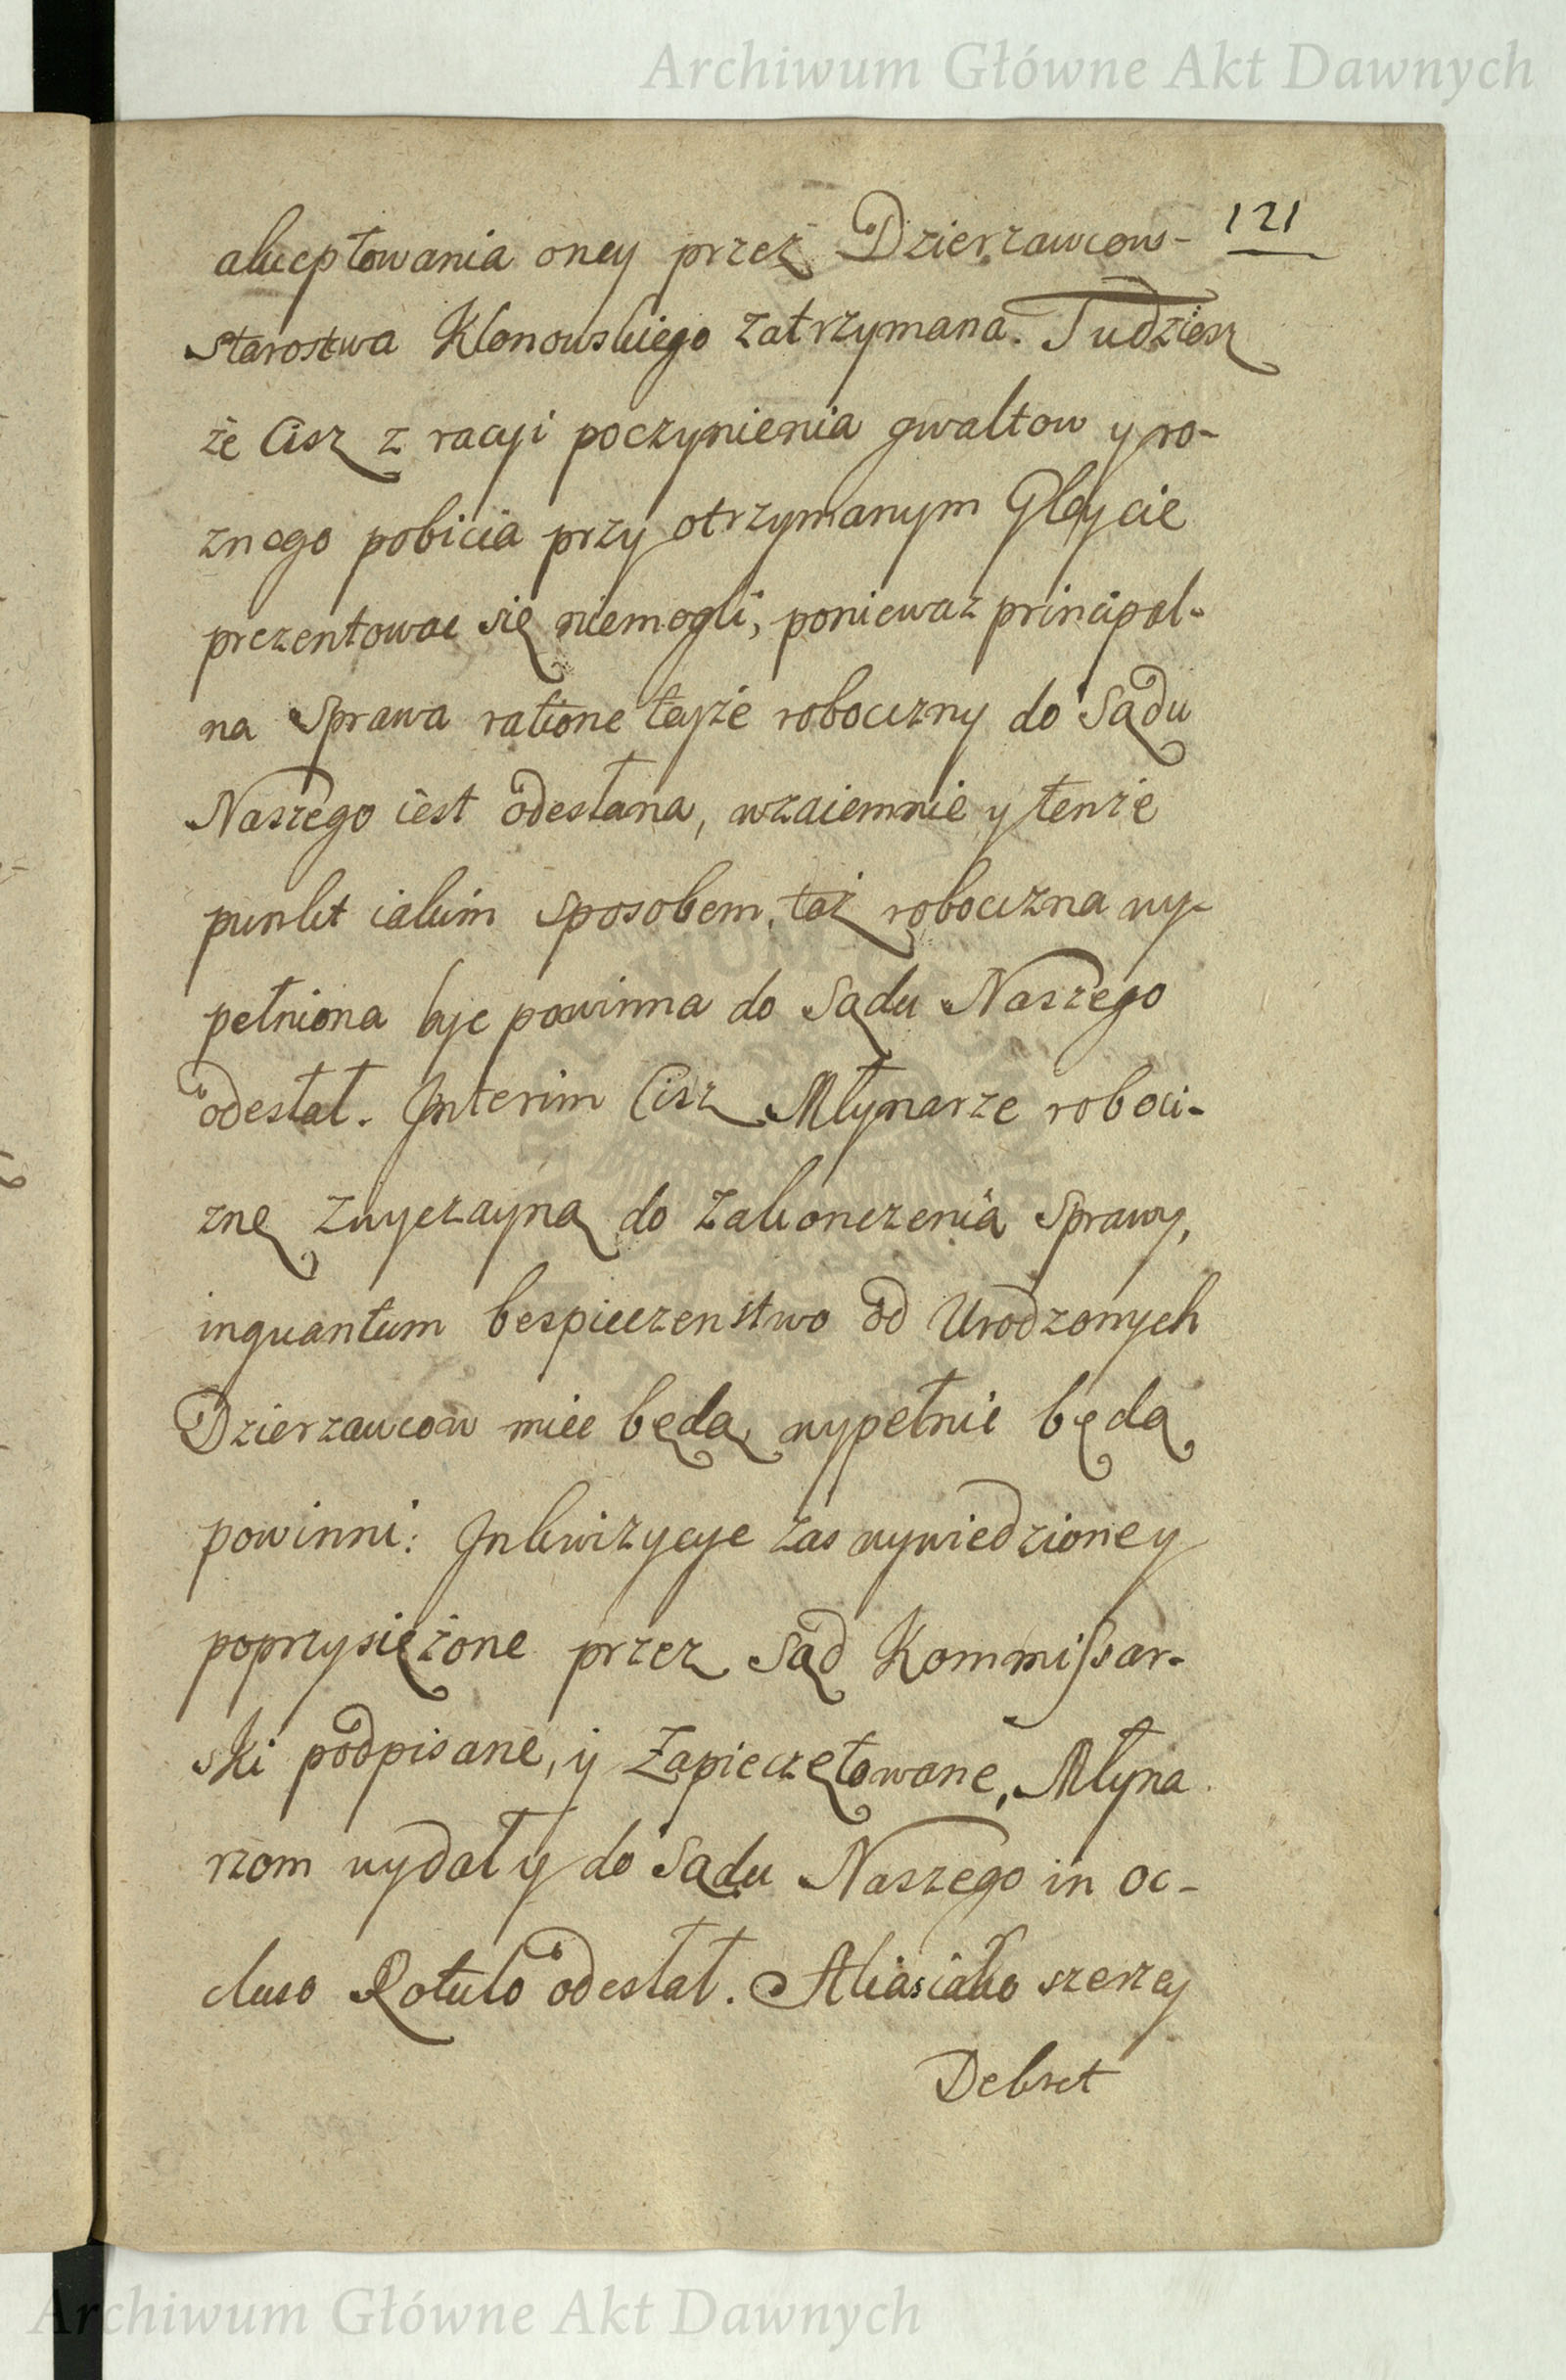 Archiwum Główne Akt Dawnych
121
akceptowania oney przez Dzierzawcow-
Starostwa Klonowskiego zatrzymana. Tudziesz
że Cisz z racyi poczynienia gwaltow y ro-
znego pobicia przy otrzymanym Gleycie
prezentowac się niemogli, poniewaz principal-
na Sprawa ratione teyże robocizny do Sądu
Naszego iest odesłana, wzaiemnie y tenże
punkt iakim sposobem, taż robocizna wy-
pełniona byc powinna do Sądu Naszego
odesłał. Interim Cisz Młynarze roboci-
znę zwyczayną do zakonczenia Sprawy,
inquantum bespieczenstwo od Urodzonych
Dzierzawcow miec będą, wypełnic będą
powinni: Inkwizycye zas wywiedzioney
poprzysiężone przez Sąd Kommissar-
ski podpisane, y zapieczętowane, Młyna
rzom wydał y do Sądu Naszego in oc-
cluso Rotulo odesłał. A iako szerzey
Dekret
Archiwum Główne Akt Dawnych